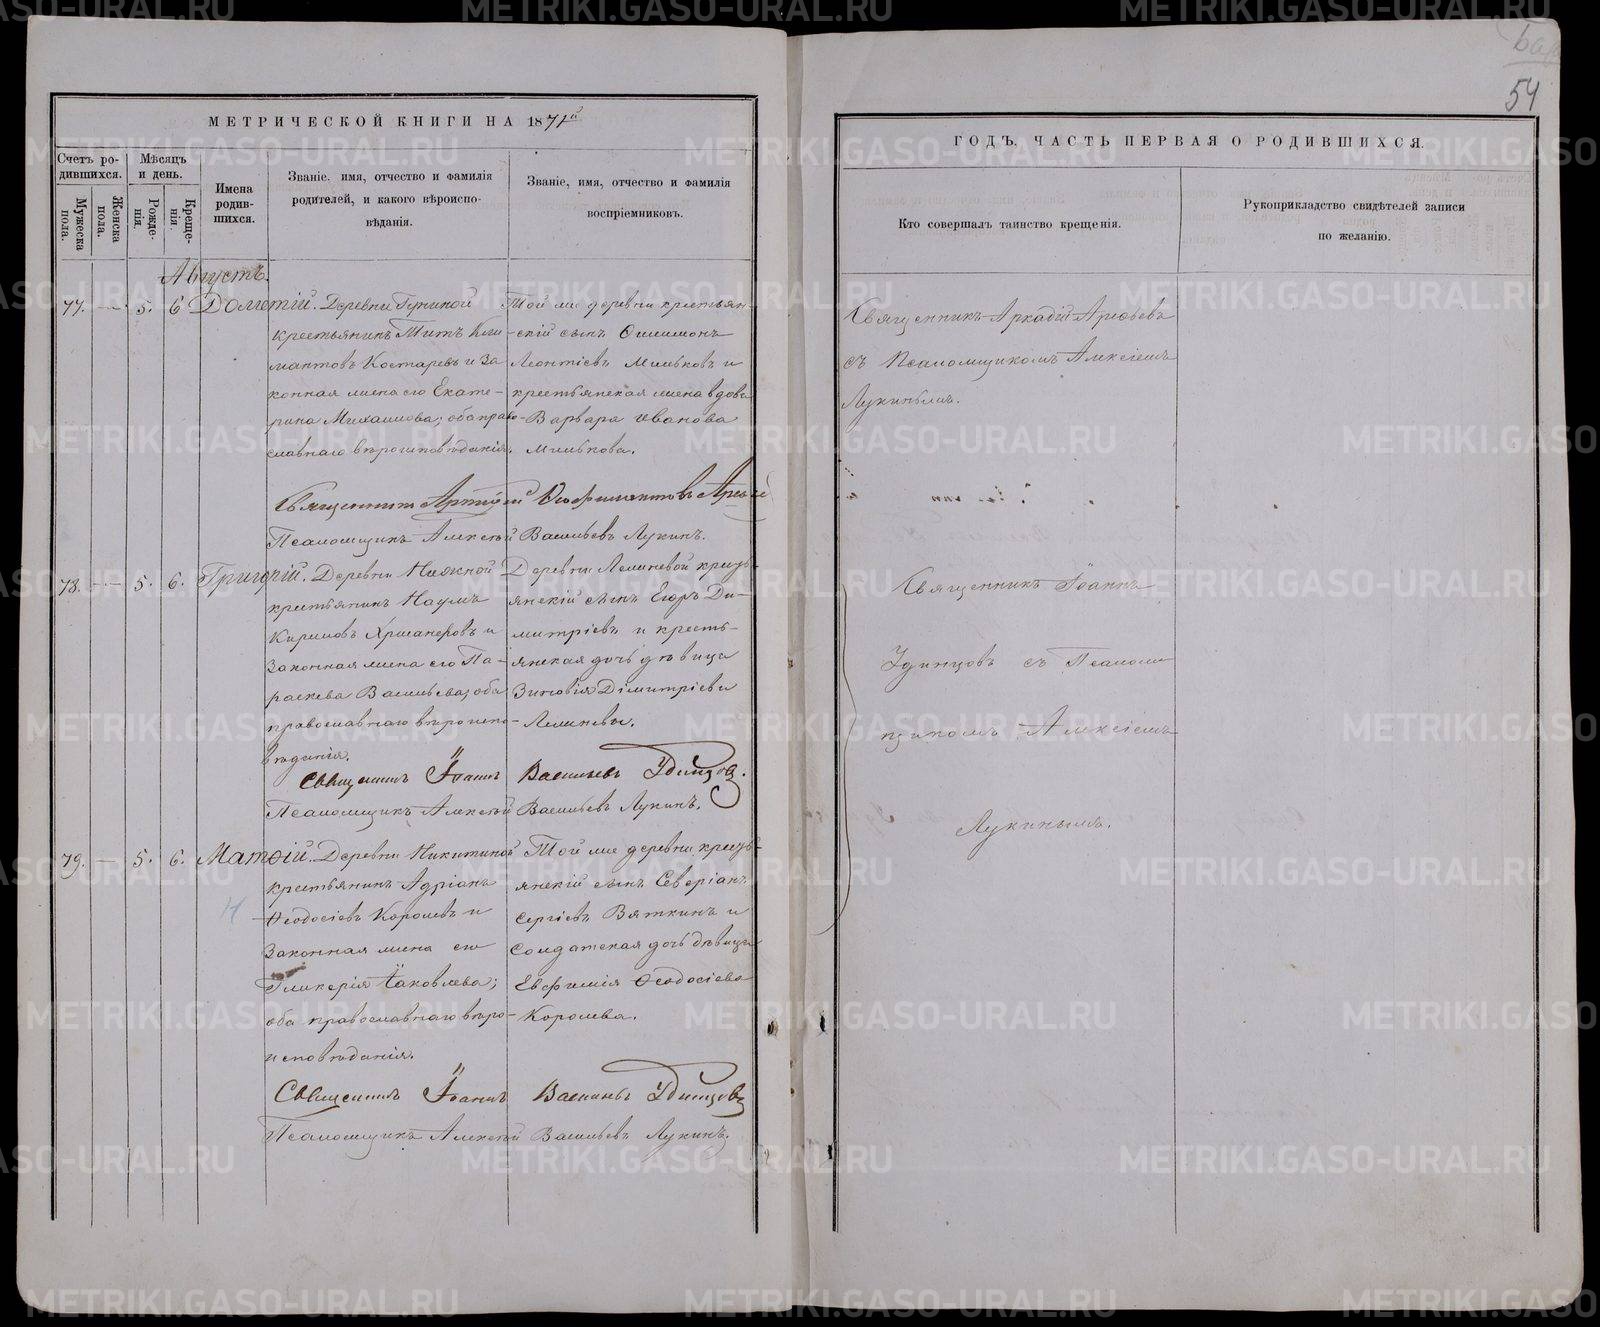 54
МЕТРИЧЕСКОЙ КНИГИ НА 1871й
ГОДЪ, ЧАСТЬ ПЕРВАЯ О РОДИВШИХСЯ.
Счетъ родившихся.
Мужеска пола.
Женска пола.
Мѣсяцъ и день.
Рожденія.
Крещенія.
Имена родившихся.
Званіе, имя, отчество и фамилія
родителей, и какого вѣроиспо-
вѣданія.
Званіе, имя, отчество и фамилія
воспріемниковъ.
Кто совершалъ таинство крещенія.
Рукоприкладство свидѣтелей записи
по желанію.
Августъ.
77. — 5. 6 Дометій.
Деревни
крестьянинъ Титъ
Костаревъ и за
конная жена его Екате-
рина Михаилова; оба право
славнаго вѣроисповѣданія.
Той же деревни крестьян-
скій сынъ
Леонтіевъ Мильковъ и
крестьянская жена вдова
Варвара Иванова
Милькова.
Священникъ Аркадій
съ Псаломщикомъ Алексіемъ
Лукинымъ.
Священникъ
Псаломщикъ Алексѣй Васильевъ Лукинъ.
78. — 5. 6. Григорій.
Деревни
крестьянинъ Наумъ
Кириловъ и
законная жена его Па-
раскева Васильева; оба
православнаго вѣроиспо-
вѣданія.
Деревни кресть-
янскій сынъ Егоръ Ди-
митріевъ и кресть-
янская дочь дѣвица
Зиновія Димитріева
Священникъ Іоаннъ
Удинцовъ съ Псаломщ
щикомъ Алексіемъ
Лукинымъ.
Священникъ Іоаннъ Васильевъ Удинцовъ.
Псаломщикъ Алексѣй Васильевъ Лукинъ.
79. — 5. 6. Матѳій.
Деревни Никитиной
крестьянинъ Адріанъ
Ѳеодосіевъ Королевъ и
законная жена его
Гликерія Іаковлева;
оба православнаго вѣро-
исповѣданія.
Той же деревни кресть-
янскій сынъ Северіанъ
Сергіевъ Вяткинъ и
солдатская дочь дѣвица
Евфимія Ѳеодосіева
Королева.
Священникъ Іоаннъ Васильевъ Удинцовъ
Псаломщикъ Алексѣй Васильевъ Лукинъ.
METRIKI.GASO-URAL.RU